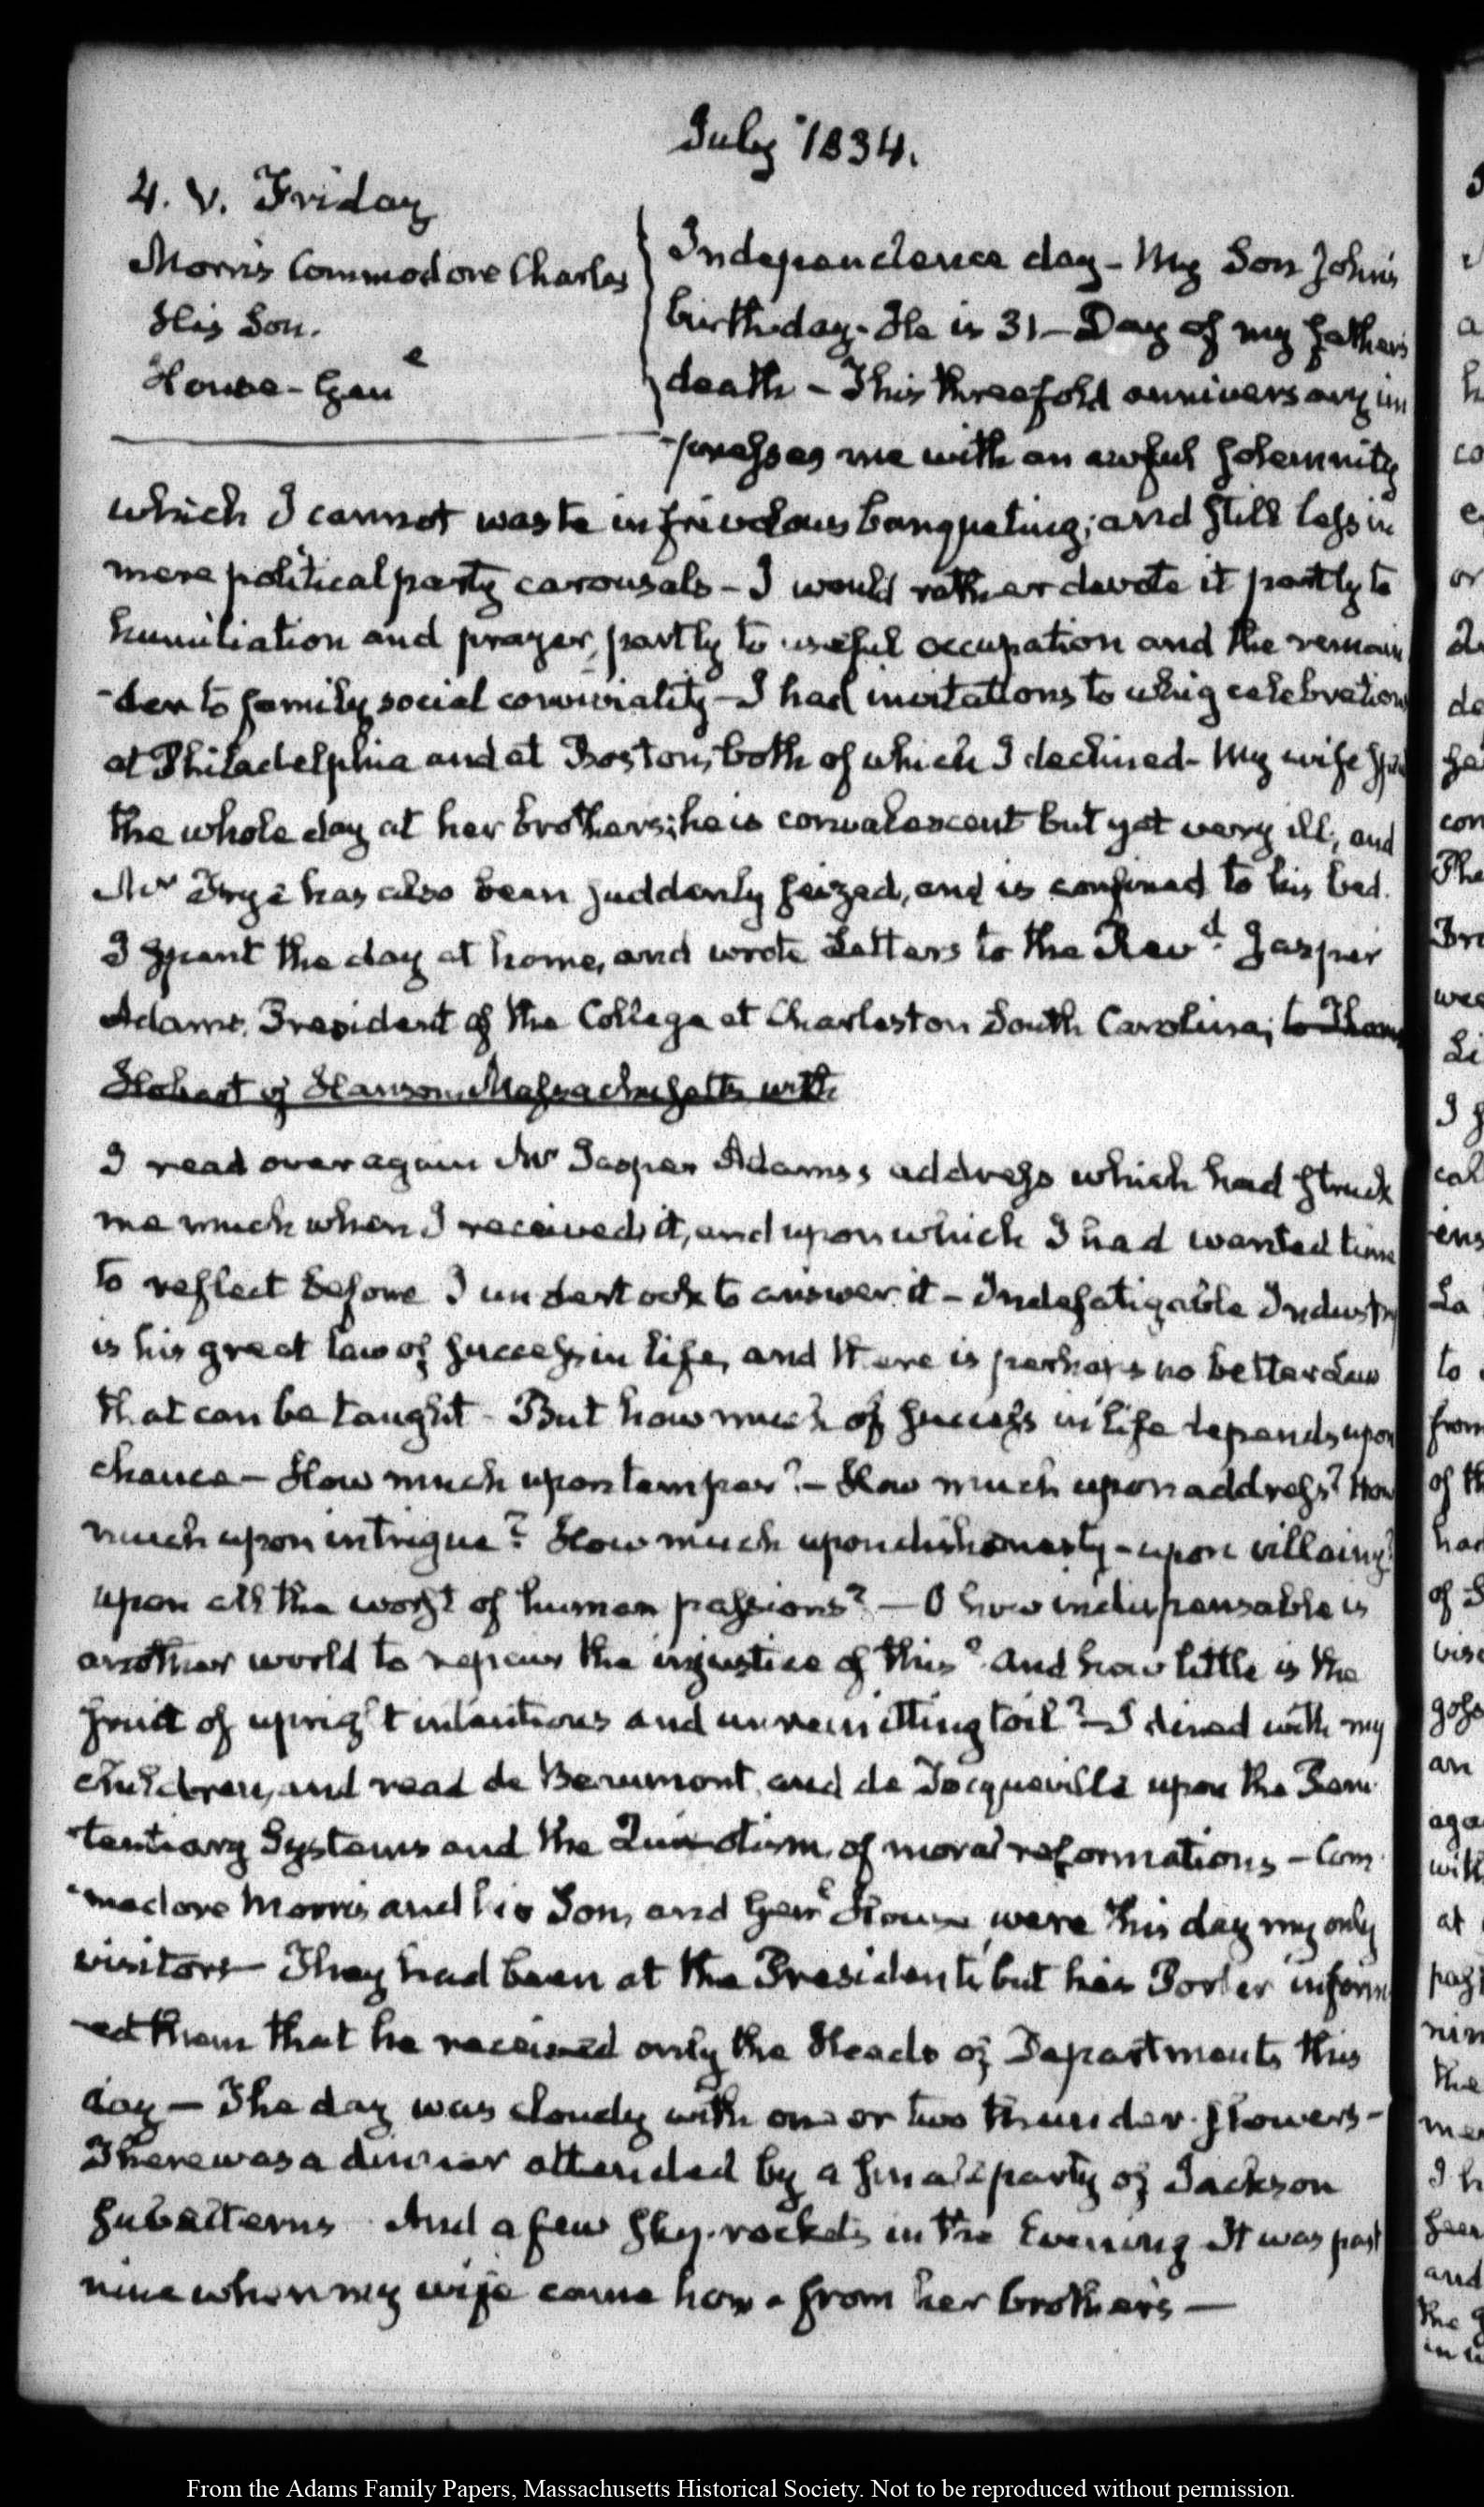 July 1834.
4. V. Friday
Morris Commodore Charles
His Son.
House - Geo e
Independence day - My Son John's
birth-day. He is 31 - Day of my father's
death - This threefold anniversary im
-presses me with an awful solemnity
which I cannot waste in frivolous banqueting; and still less in
mere political party carousals - I would rather devote it partly to
humiliation and prayer, partly to useful occupation and the remain
-der to family social conviviality - I had invitations to whig celebrations
at Philadelphia and at Boston, both of which I declined - My wife spent
the whole day at her brother's; he is convalescent but yet very ill, and
Mr Frye has also been suddenly seized, and is confined to his bed.
I spent the day at home, and wrote Letters to the Revd. Jasper
Adams. President of the College at Charleston South Carolina; to Thomas
Hobart of Hanson Massachusetts with
I read over again Mr Jasper Adams's address which had struck
me much when I received it, and upon which I had wanted time
to reflect before I undertook to answer it - Indefatigable Industry
is his great law of success in life, and there is perhaps no better Law
that can be taught - But how much of success in life depends upon
chance - How much upon temper? - How much upon address? How
much upon intrigue? How much upon dishonesty - upon villainy?
upon all the worst of human passions? - O how indispensable is
another world to repair the injustice of this? And how little is the
fruit of upright intentions and unremitting toil? - I dined with my
children, and read de Beaumont and de Tocqueville upon the Peni
-tentiary Systems and the of moral reformations - Com
-modore Morris and his Son, and House were this day my only
visitors - They had been at the President's but his Porter inform
-ed them that he received only the Heads of Departments this
day - The day was cloudy with one or two thunder-showers -
There was a dinner attended by a small party of Jackson
subalterns And a few sky-rockets in the Evening It was past
nine when my wife came home from her brother's -
From the Adams Family Papers, Massachusetts Historical Society. Not to be reproduced without permission.